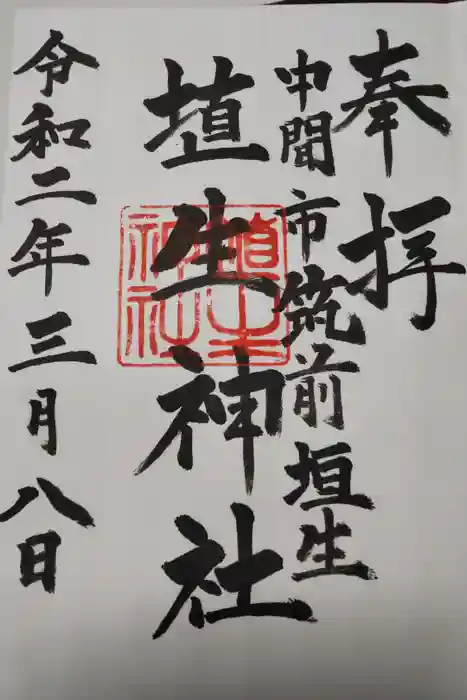 奉拝
中間市筑前垣生
埴生神社
令和二年三月八日
埴生
神社